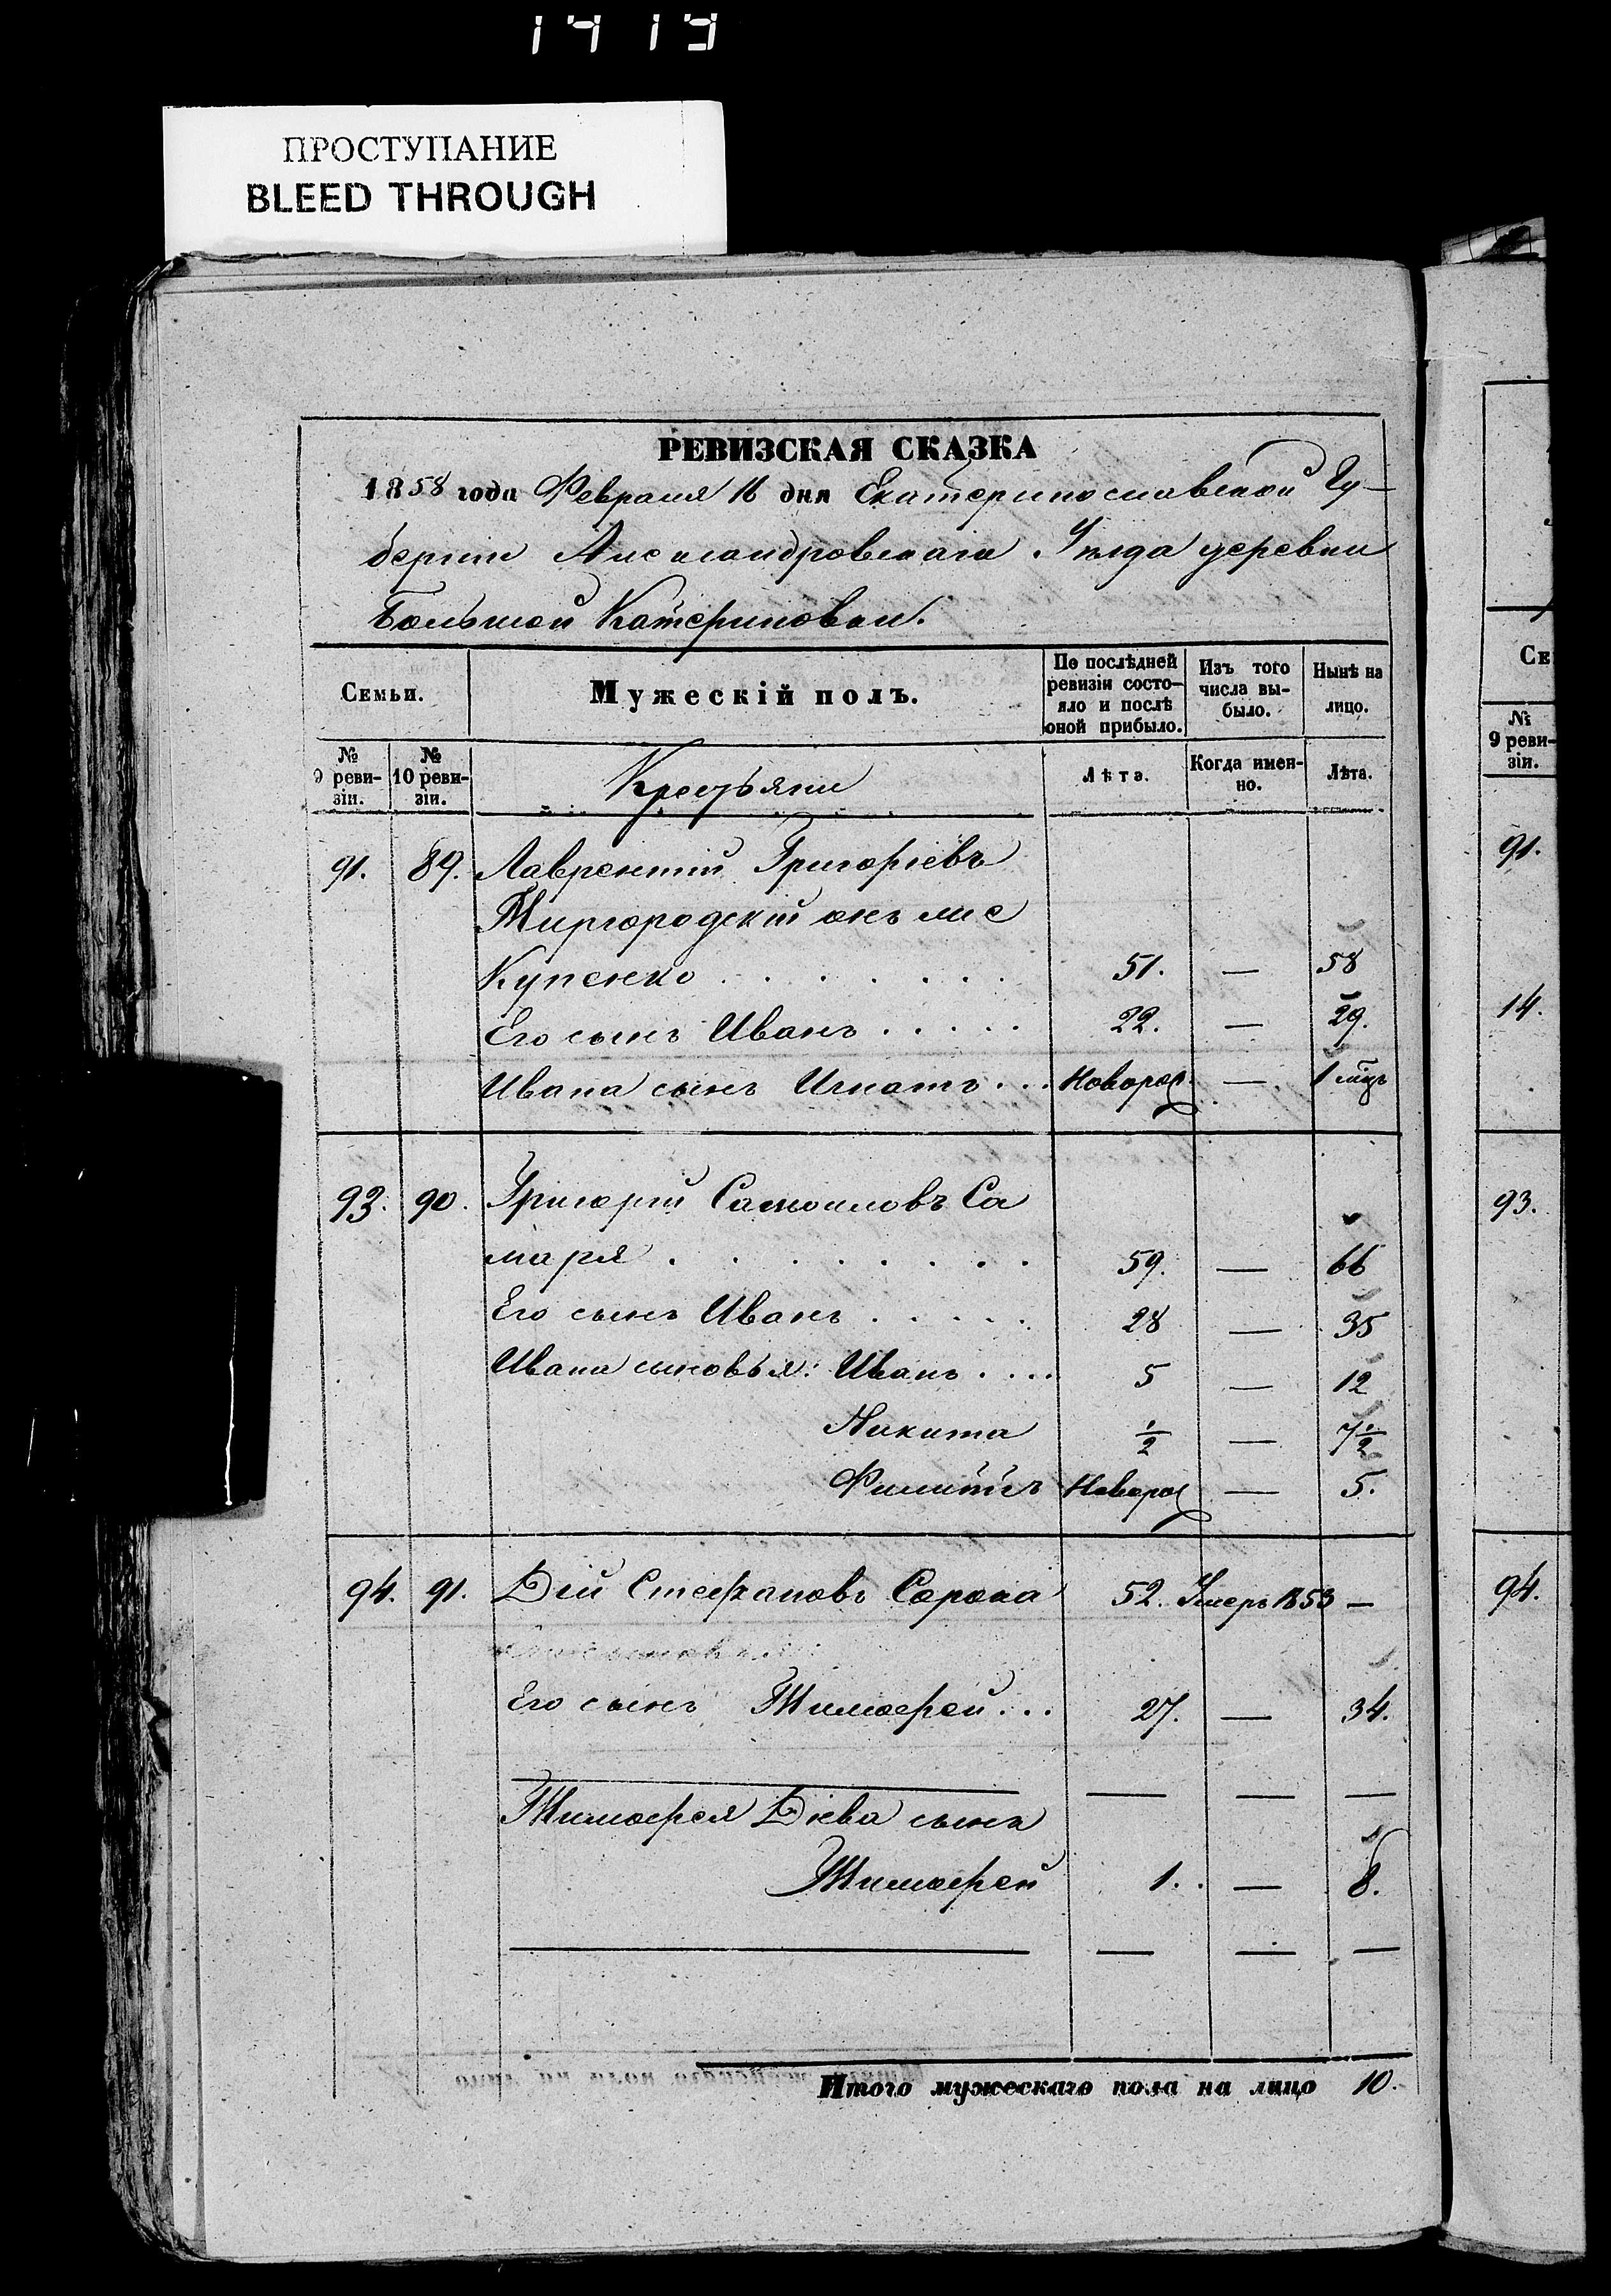 1419
ПРОСТУПАНИЕ
BLEED THROUGH
РЕВИЗСКАЯ СКАЗКА
1858 года Февраля 16 дня Екатеринославской Гу-
берніи Александровскаго Уѣзда деревни
Большой Катериновки.
Семьи. Мужескій полъ. По послѣдней ревизіи состо-яло и послѣ оной прибыло. Изъ того числа вы-было. Нынѣ на лицо.
№ 9 реви-зіи. № 10 реви-зіи. Крестьяни Лѣта. Когда имен-но. Лѣта.
91. 89. Лаврентій Григорьевъ
Миргородскій онъ же
Купенко . . . . . . . 51. — 58
Его сынъ Иванъ . . . . . 22. — 29.
Ивана сынъ Игнатъ . . . Новорож. — 1 мцъ
93. 90. Григорій Самоиловъ Са
маря . . . . . . . . 59. — 66
Его сынъ Иванъ . . . . . 28 — 35
Ивана сыновья: Иванъ . . . . 5 — 12
Никита 1/2 — 7 1/2
Филиппъ Новорож — 5.
94. 91. Дій Стефановъ Сорока 52. Умеръ 1853 —
Его сынъ Тимофей . . . 27. — 34.
— — —
Тимофея Діева сынъ
Тимофей 1. — 8.
— — —
Итого мужескаго пола на лицо 10.
Се
№ 9 реви-зіи.
91.
14.
93.
94.